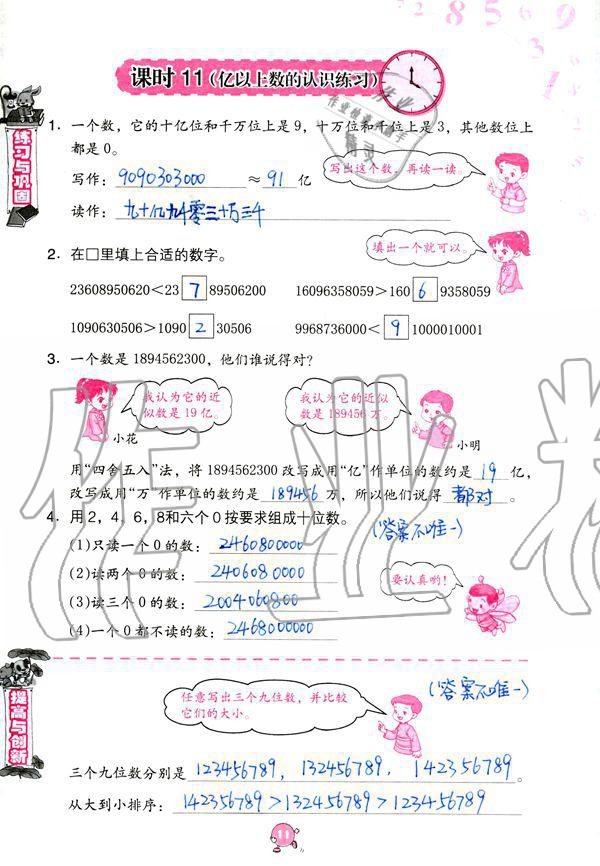 2 8 5 6 9
3
1
课时11（亿以上数的认识练习）
练习与巩固
1. 一个数，它的十亿位和千万位上是9，十万位和千位上是3，其他数位上
都是0。
写作：9090303000 ≈ 91 亿
写出这个数，再读一读。
读作：九十亿九千零三十万三千
2. 在□里填上合适的数字。
填出一个就可以。
23608950620＜23 7 89506200 16096358059＞160 6 9358059
1090630506＞1090 2 30506 9968736000＜ 9 1000010001
3. 一个数是1894562300，他们谁说得对？
我认为它的近
似数是19亿。
小花
我认为它的近似
数是189456万。
小明
用“四舍五入”法，将1894562300改写成用“亿”作单位的数约是 19 亿，
改写成用“万”作单位的数约是 189456 万，所以他们说得 都对 。
4. 用2，4，6，8和六个0按要求组成十位数。
(答案不唯一)
(1)只读一个0的数：2460800000
(2)读两个0的数：2406080000
(3)读三个0的数：2004060800
(4)一个0都不读的数：2468000000
要认真哟！
提高与创新
任意写出三个九位数，并比较
它们的大小。
(答案不唯一)
三个九位数分别是 123456789， 133456789， 142356789 。
从大到小排序：1423356789＞133456789＞123456789
11
作业精灵